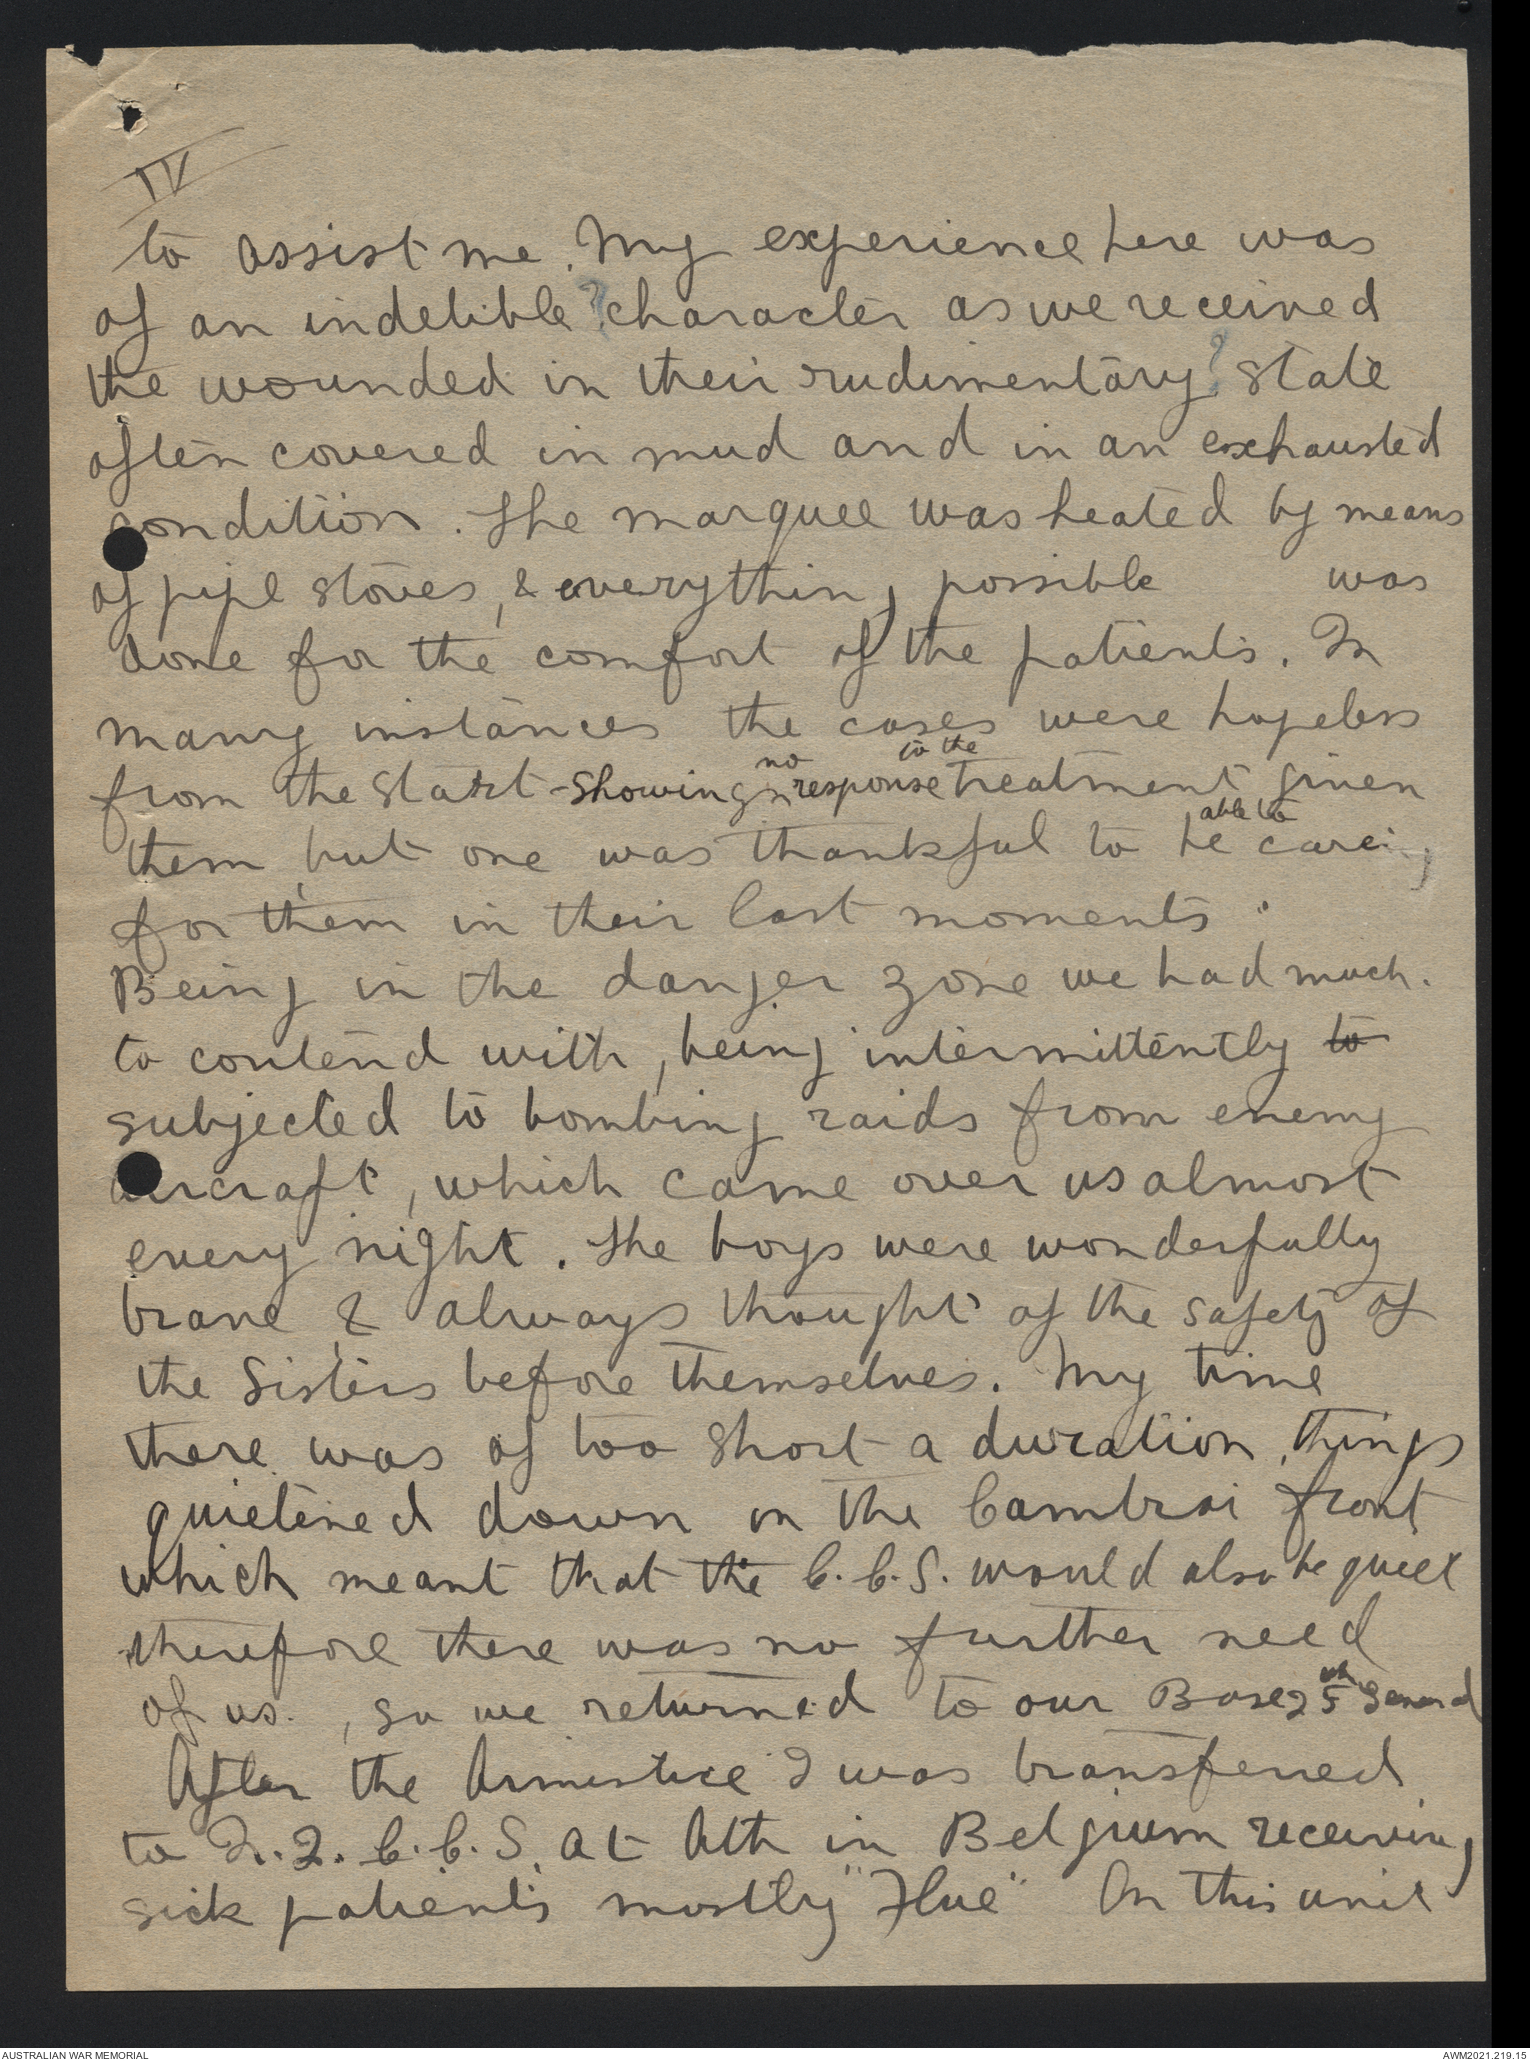 IV
to assist me. My experience here was
of an indelible ? character as we received
the wounded in their rudimentary ? state
often covered in mud and in an exhausted
condition. The marquee was heated by means
of pipe stoves, & everything possible was
done for the comfort of the patients. In
many instances the cases were hopeless
from the start - showing no response to the treatment given
them, but one was thankful to be able to care
for them in their last moments.
Being in the danger zone we had much.
to contend with, being intermittently to
subjected to bombing raids from enemy
aircraft, which came over us almost
every night. The boys were wonderfully
brave & always thought of the safety of
the Sisters before themselves. My time
there was of too short a duration, things
quietened down on the Cambrai front
which meant that the C.C.S. would also be quiet
therefore there was no further need
of us., so we returned to our Base 25th General
After the Armistice I was transferred
to C.C.S. at Ath in Belgium receiving
sick patients mostly "Flue" On this unit
AUSTRALIAN WAR MEMORIAL
AWM2021.219.15